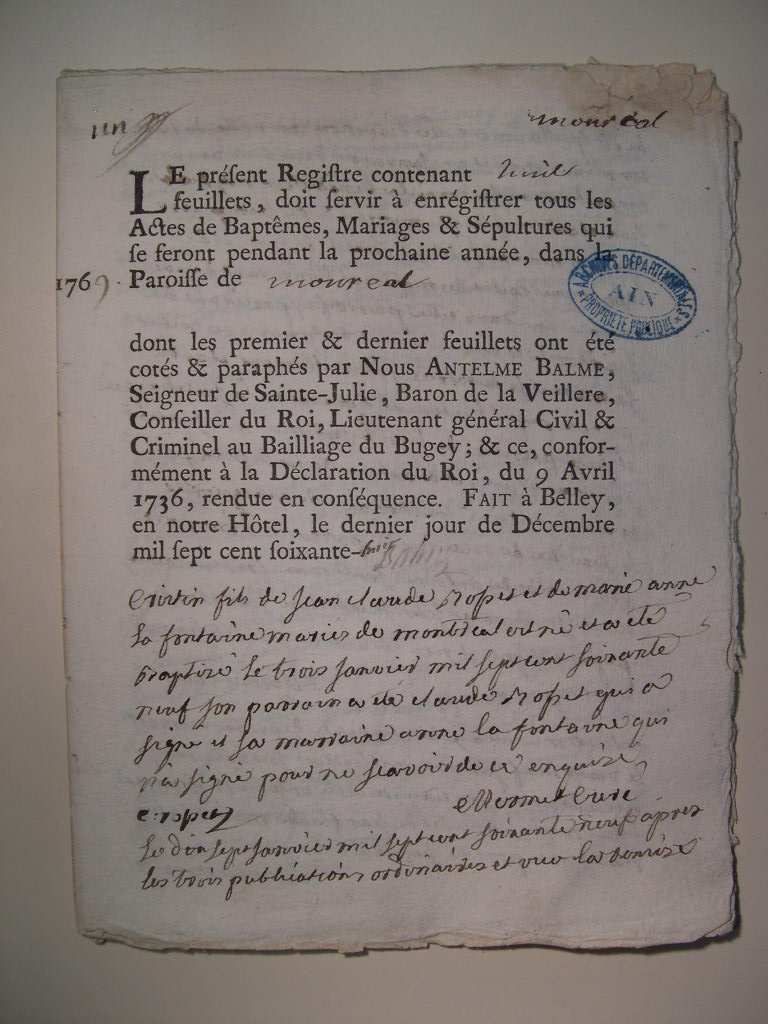 un
monreal
LE préſent Regiſtre contenant huit
feuillets, doit ſervir à enrégiſtrer tous les
Actes de Baptêmes, Mariages & Sépultures qui
ſe feront pendant la prochaine année, dans la
1769. Paroiſſe de monreal
ARCHIVES DÉPARTEMENTALES
AIN
PROPRIÉTÉ PUBLIQUE
dont les premier & dernier feuillets ont été
cotés & paraphés par Nous ANTELME BALME,
Seigneur de Sainte-Julie, Baron de la Veillere,
Conſeiller du Roi, Lieutenant général Civil &
Criminel au Bailliage du Bugey; & ce, confor-
mément à la Déclaration du Roi, du 9 Avril
1736, rendue en conſéquence. FAIT à Belley,
en notre Hôtel, le dernier jour de Décembre
mil ſept cent ſoixante-huit
fils de jean claude Ropet et de marie anne
la fontaine mariés de montreal est né et a été
baptizé le trois janvier mil sept cent soixante
neuf son parrain a été claude Ropet qui a
signé et sa marraine anne la fontaine qui
n'a signé pour ne scavoir de ce enquise
c: ropet
Mermet Curé
le dix sept janvier mil sept cent soixante neuf apres
les trois publications ordinaires et vue la remise